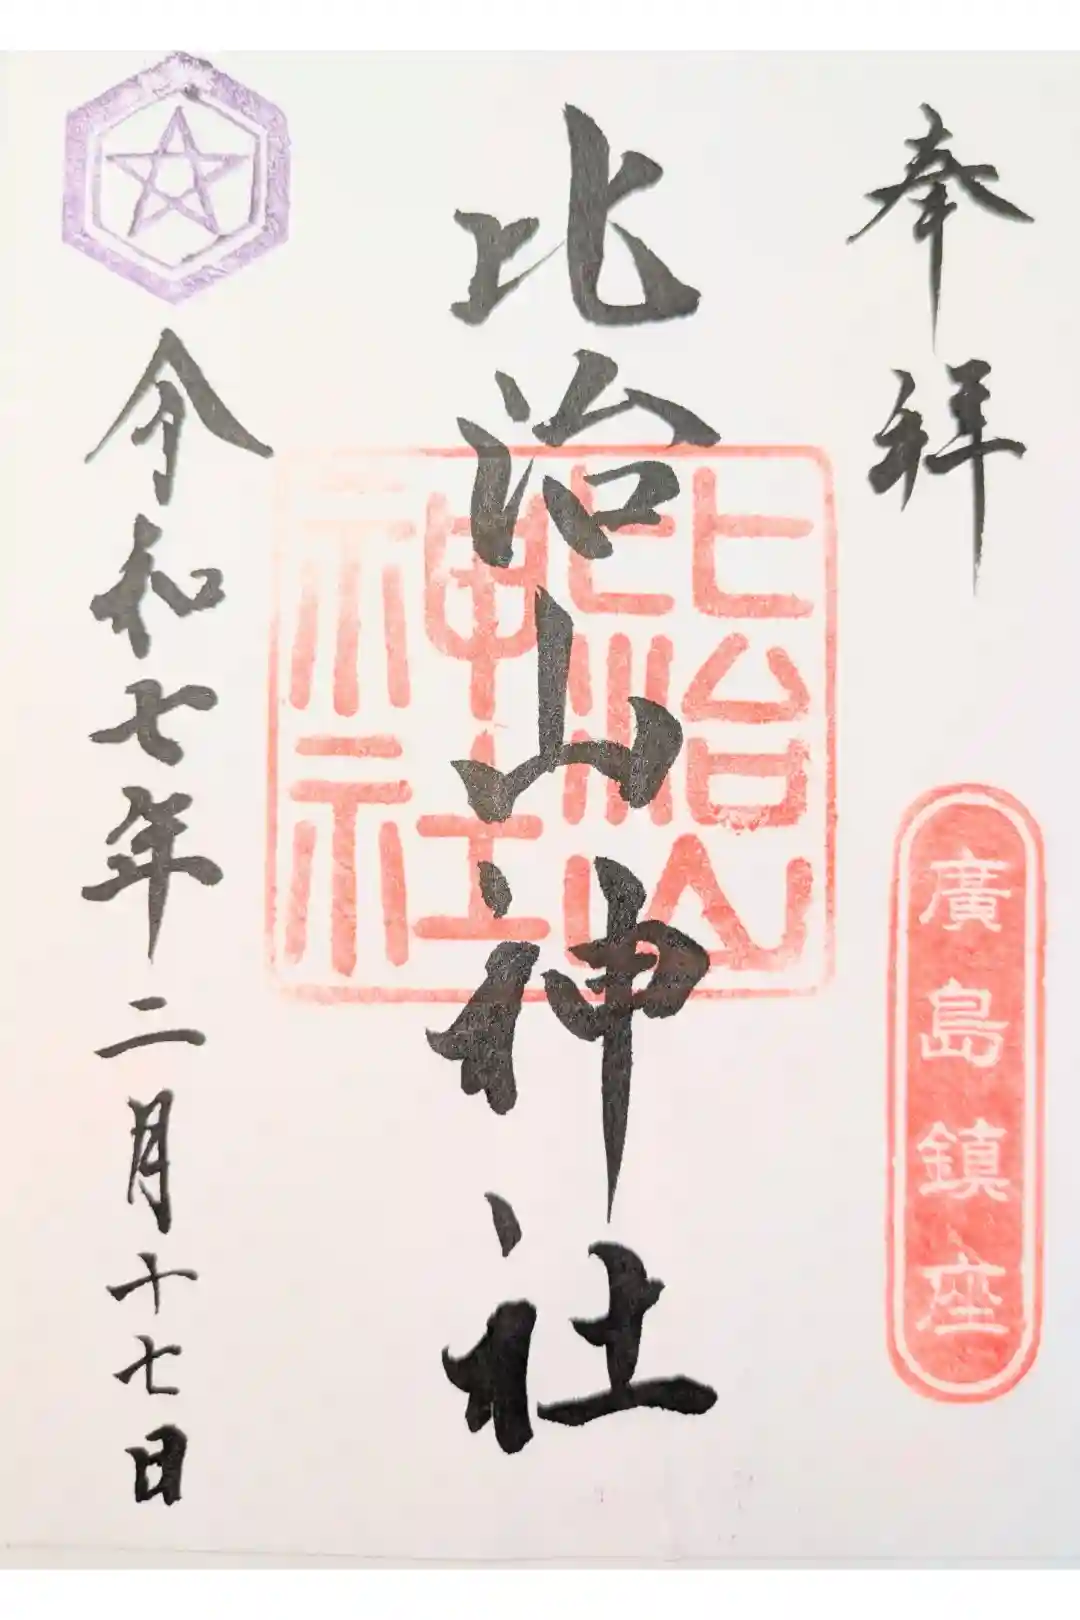 奉拝
廣島鎮座
比治山神社
比治山
神社
令和七年二月十七日